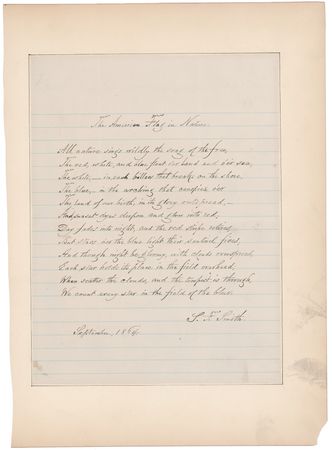 The American Flag in Nature.
All nature sings wildly the song of the free,
The red, white, and blue float o'er land and o'er sea,
The white, – in each billow that breaks on the shore,
The blue, – in the arching that canopies o'er
The land of our birth, in its glory outspread, –
And sunset dyes deepen and glow into red;
Day fades into night, and the red stripe retires,
But stars o'er the blue light their sentinel fires,
And though night be gloomy, with clouds overspread,
Each star holds its place in the field overhead,
When scatter the clouds, and the tempest is through,
We count every star in the field of the blue.
S. F. Smith.
September, 18